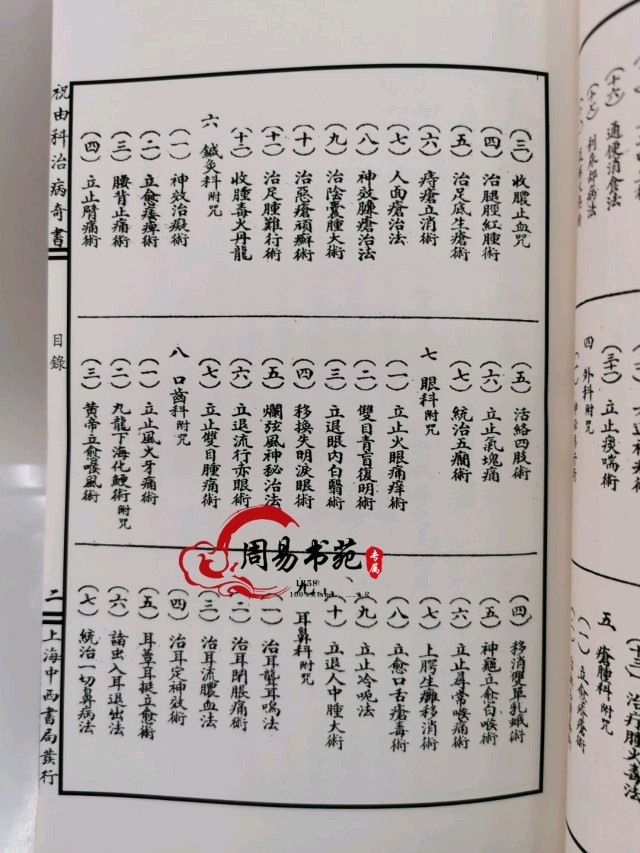 祝由科治病奇書
目錄
二
上海中西書局發行
(三) 收膿止血咒
(四) 治腿脛紅腫術
(五) 治足底生瘡術
(六) 痔瘡立消術
(七) 人面瘡治法
(八) 神效臁瘡治法
(九) 治陰囊腫大術
(十) 治惡瘡頑癬術
(十一) 治足腫難行術
(十二) 收腫毒火丹龍
六 鍼灸科附咒
(一) 神效治癡術
(二) 立愈痿痺術
(三) 腰背止痛術
(四) 立止臂痛術
(五) 活絡四肢術
(六) 立止氣塊痛
(七) 統治五癇術
七 眼科附咒
(一) 立止火眼痛痒術
(二) 雙目青盲復明術
(三) 立退眼內白翳術
(四) 移換失明淚眼術
(五) 爛弦風神秘治法
(六) 立退流行赤眼術
(七) 立止雙目腫痛術
八 口齒科附咒
(一) 立止風火牙痛術
(二) 九龍下海化鯁術附咒
(三) 黃帝立愈喉風術
(四) 移消雙單乳蛾術
(五) 神龜立愈白喉術
(六) 立止尋常喉痛術
(七) 上腭生癰移消術
(八) 立愈口舌瘡毒術
(九) 立止冷呃法
(十) 立退人中腫大術
九 耳鼻科附咒
(一) 治耳聾耳鳴法
(二) 治耳閉脹痛術
(三) 治耳流膿血法
(四) 治耳定神效術
(五) 耳蕈耳挺立愈術
(六) 諸虫入耳退出法
(七) 統治一切鼻病法
(十六) 通梗消食法
(二十) 立止痰喘術
四 外科附咒
五 瘡腫科附咒
(十三) 治痄腫火毒法
周易书苑
专属
1858